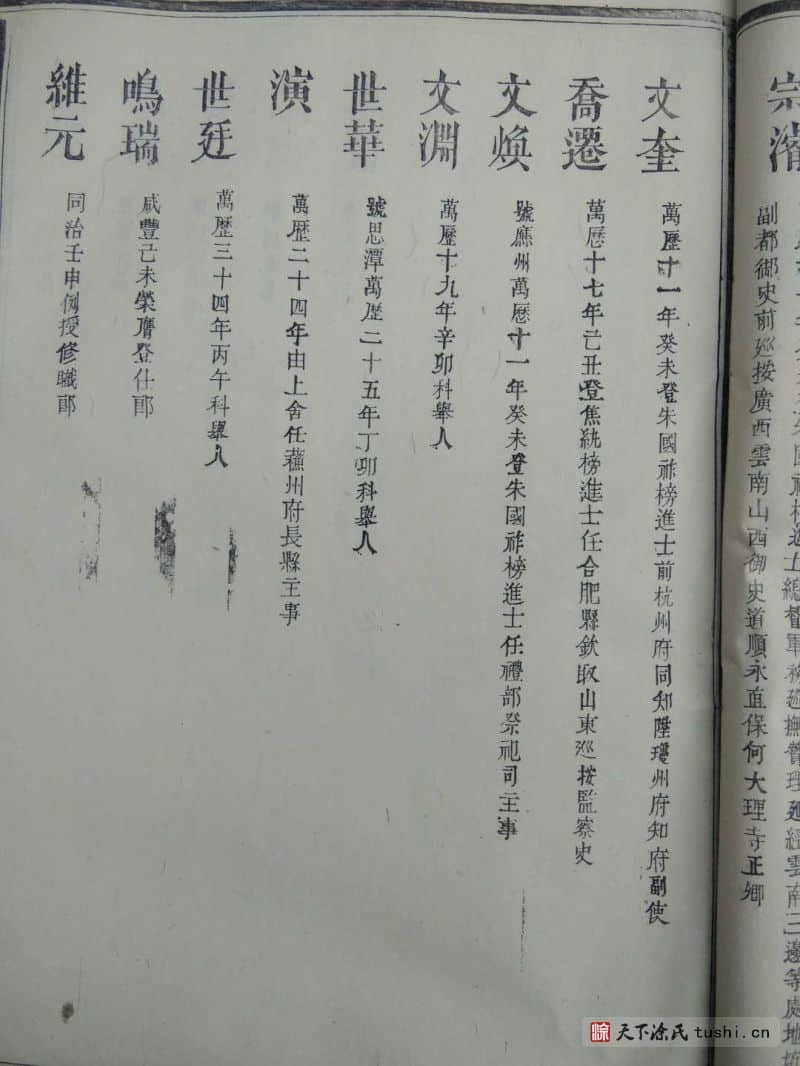 宗濬
朱國祚榜進士總督軍務巡撫督理延經雲南三邊等處地
副都御史前廵按廣西雲南山西御史道順永直保何大理寺正卿
文奎
萬歷十一年癸未登朱國祚榜進士前杭州府同知陞瓊州府知府副使
喬遷
萬歷十七年己丑登焦統榜進士任合肥縣欽取山東廵按監察史
文煥
號應州萬歷十一年癸未登朱國祚榜進士任禮部祭祀司主事
文淵
萬歷十九年辛卯科舉人
世華
號思潭萬歷二十五年丁卯科舉人
演
萬歷二十四年由上舍任蘓州府長縣主事
世廷
萬歷三十四年丙午科舉人
鳴瑞
咸豐己未榮膺登仕郎
維元
同治壬申例授修職郎
天下涂氏 tushi.cn